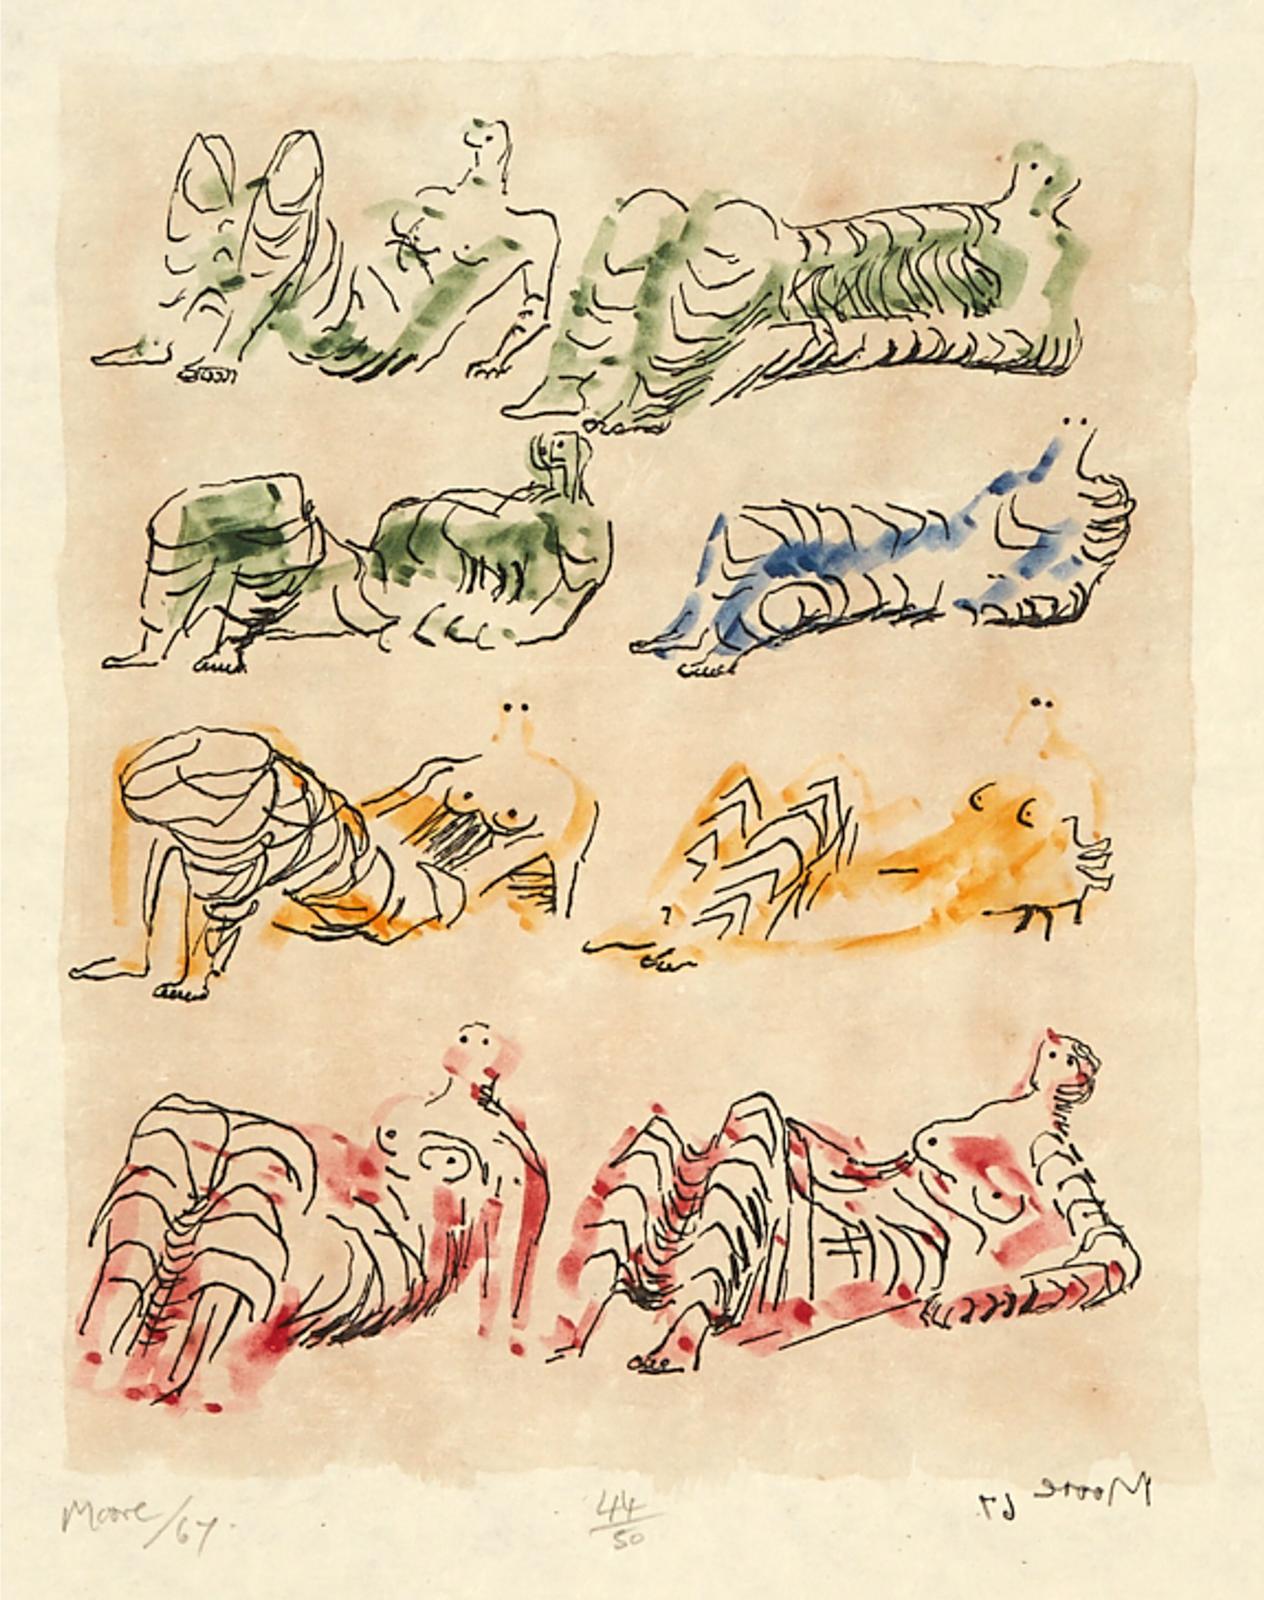 Moore/67.
44
50
Moore 67.